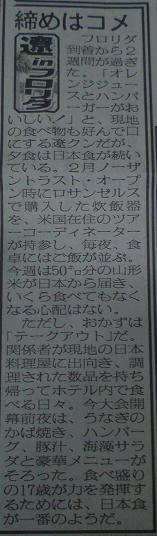 締めはコメ
遼inフロリダ
フロリダ
到着から2
週間が過ぎ
た。「オレ
ンジジュー
スとハンバ
ーガーがお
いしい！」と、現地
の食べ物も好んで口
にする遼クンだが、
夕食は日本食が続い
ている。2月ノーザ
ントラスト・オープ
ン時にロサンゼルス
で購入した炊飯器
を、米国在住のツア
ーコーディネーター
が持参し、毎夜、食
卓にはご飯が並ぶ。
今週は50㌔分の山形
米が日本から届き、
いくら食べてもなく
なる心配はない。
ただし、おかずは
「テークアウト」だ。
関係者が現地の日本
料理屋に出向き、調
理された数品を持ち
帰ってホテル内で食
べる日々。今大会開
幕前夜は、うなぎの
かば焼き、ハンバー
グ、豚汁、海藻サラ
ダと豪華メニューが
そろった。食べ盛り
の17歳が力を発揮す
るためには、日本食
が一番のようだ。